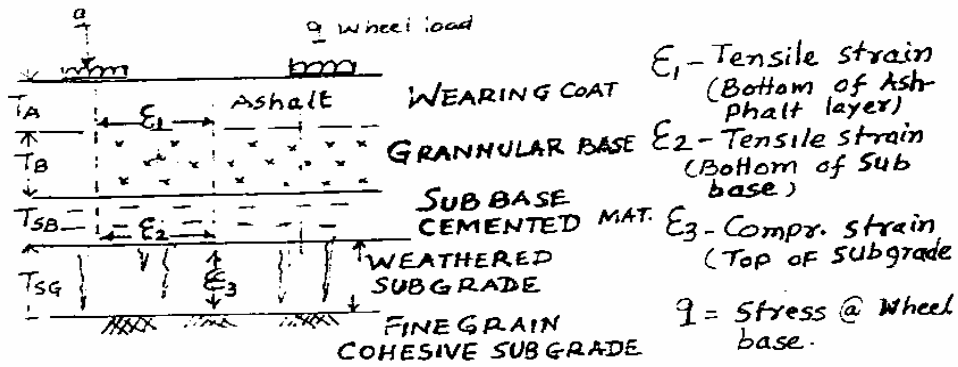 a
q Wheel load
TA
Ashalt
WEARING COAT
ε1
TB
GRANNULAR BASE
TSB
SUB BASE
CEMENTED MAT.
ε2
TSG
WEATHERED
SUBGRADE
ε3
FINE GRAIN
COHESIVE SUBGRADE
ε1 - Tensile strain
(Bottom of Ash-
phalt layer)
ε2 - Tensile strain
(Bottom of Sub
base)
ε3 - Compr. strain
(Top of Subgrade
q = Stress @ Wheel
base.